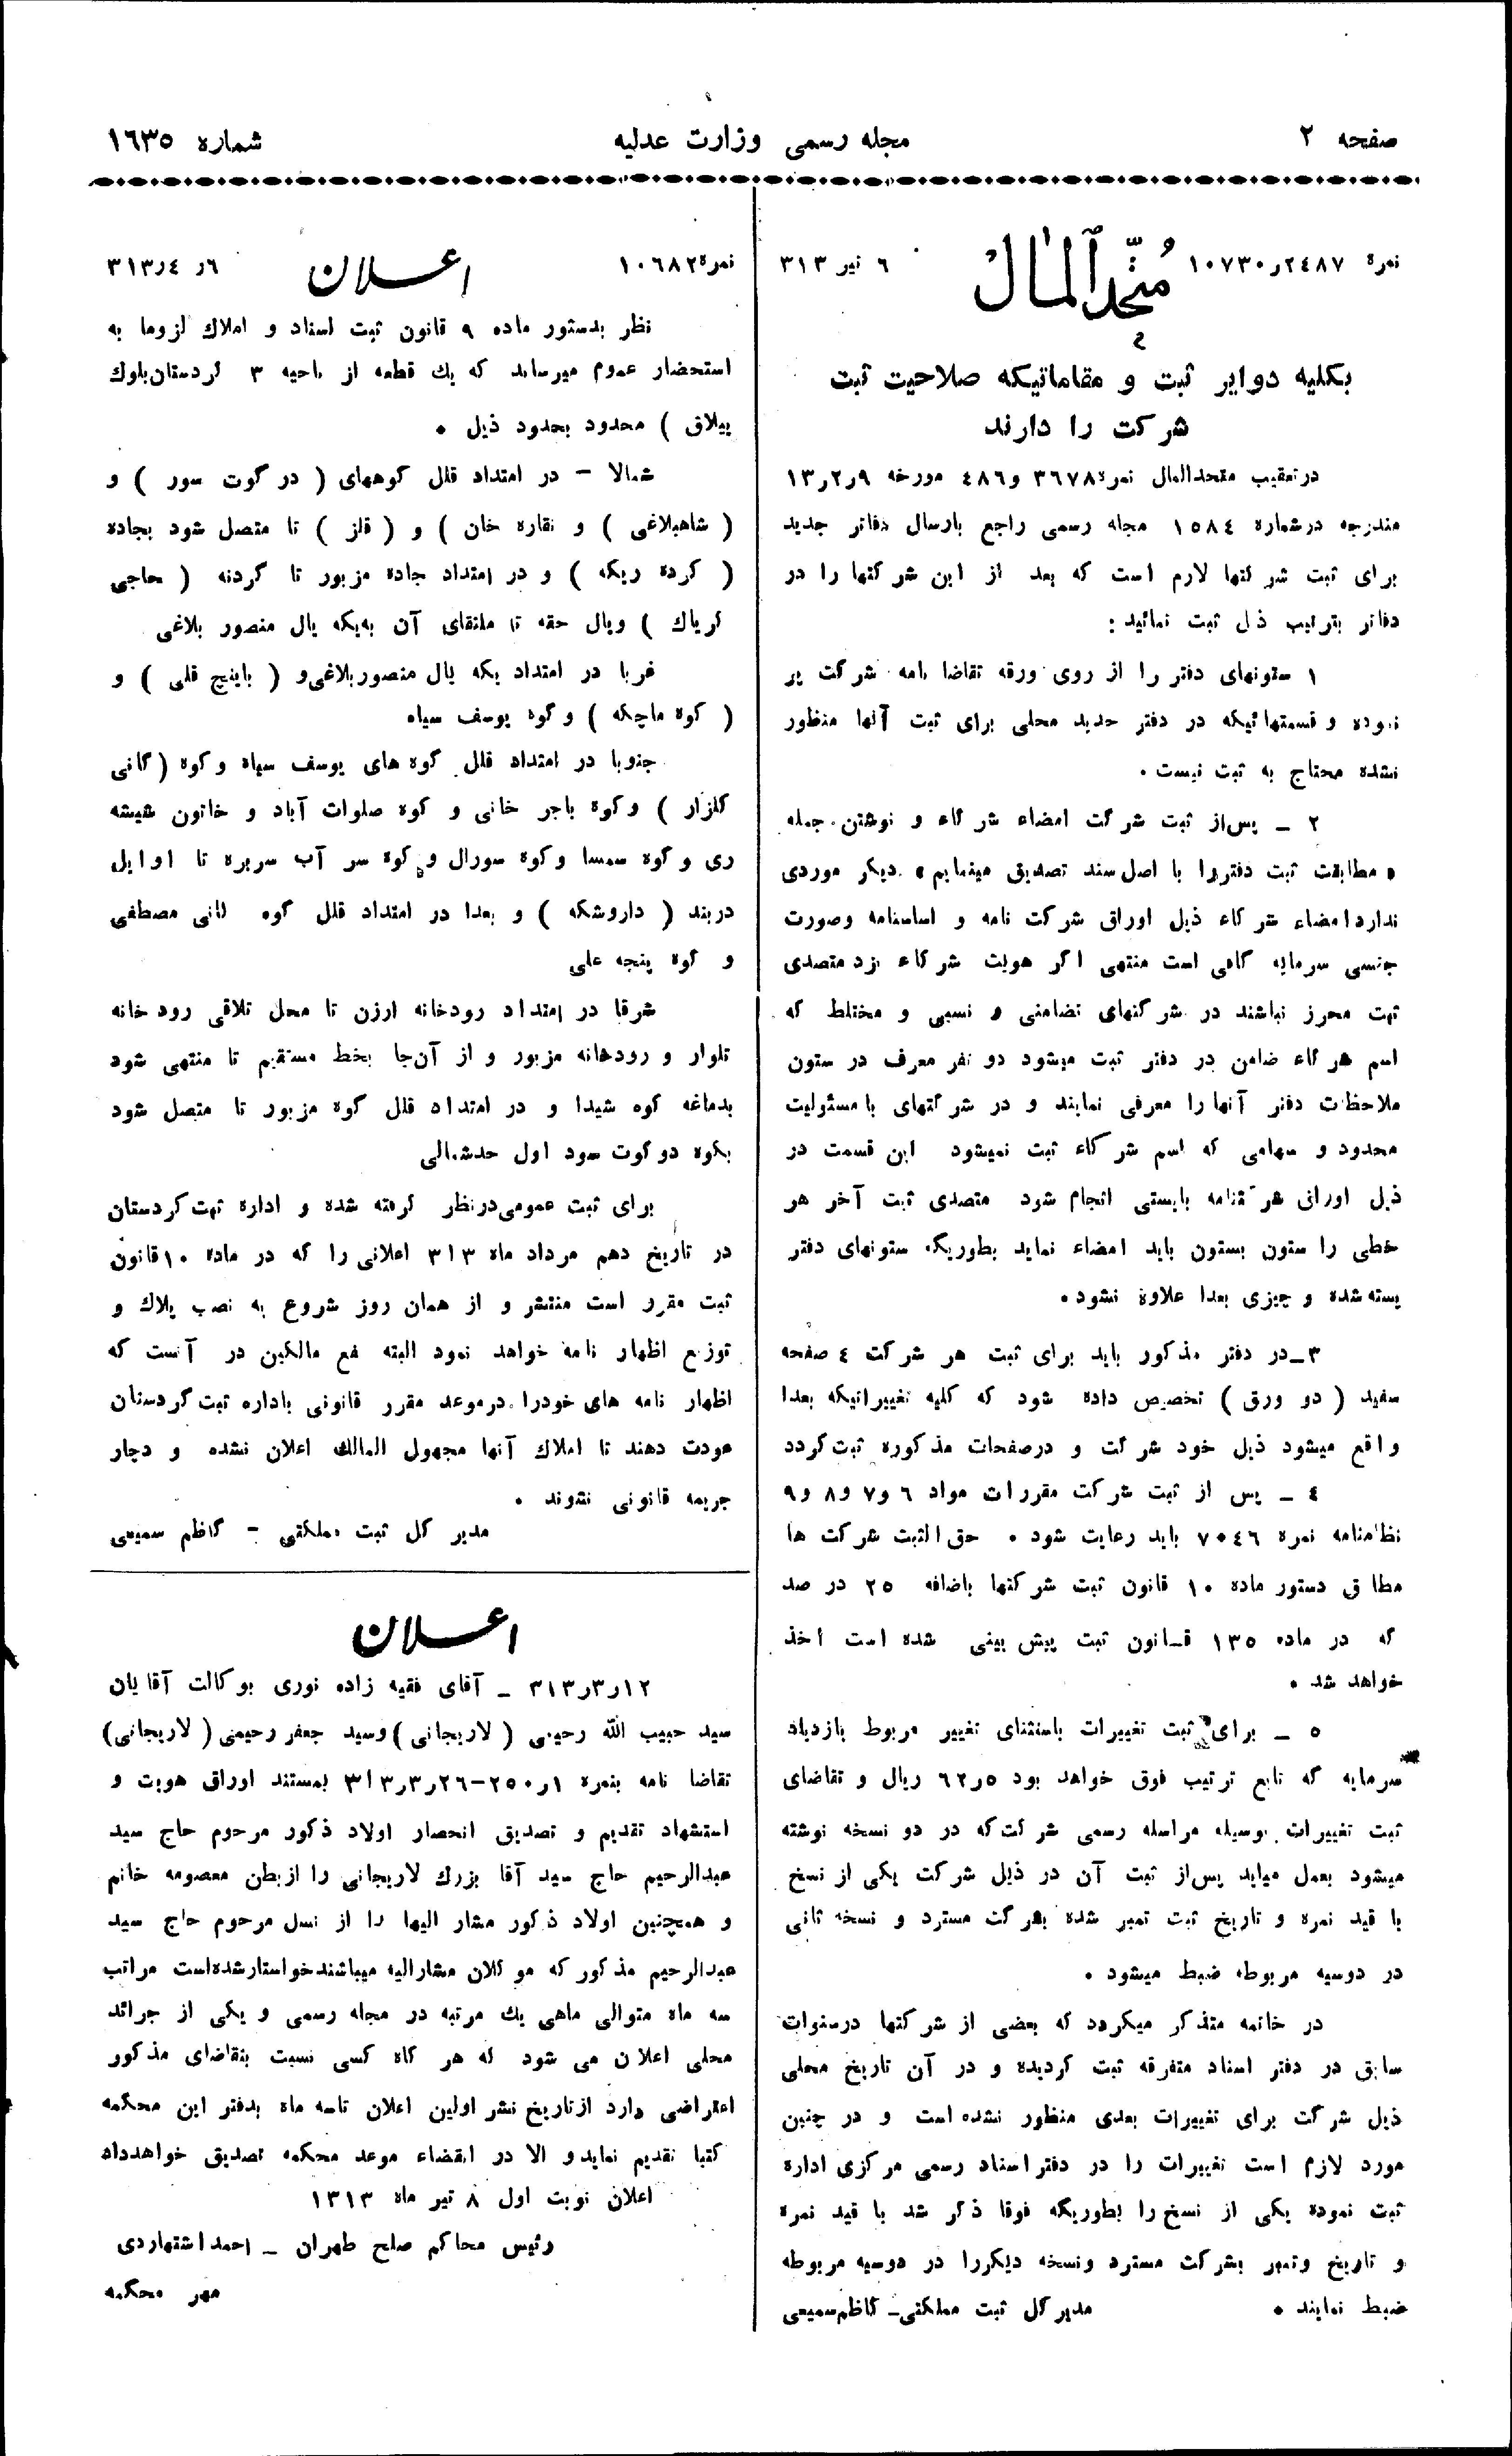 صفحه ۲
مجله رسمی وزارت عدلیه
شماره ١٦٣٥
نمره ۲٤۸۷ر۱۰۷۳۰
متحدالمال
٦ تیر ۳۱۳
بکلیه دوایر ثبت و مقاماتیکه صلاحیت ثبت
شرکت را دارند
درتعقیب متحدالمال نمره۳٦۷۸ و٤۸٦ مورخه ۹ر۲ر۱۳
مندرجه درشماره ۱۵۸٤ مجله رسمی راجع بارسال دفاتر جدید
برای ثبت شرکتها لازم است که بعد از این شرکتها را در
دفاتر بترتیب ذیل ثبت نمائید :
۱ ستونهای دفتر را از روی ورقه تقاضا نامه شرکت پر
نموده و قسمتهائیکه در دفتر جدید محلی برای ثبت آنها منظور
نشده محتاج به ثبت نیست .
۲ ــ پس‌از ثبت شرکت امضاء شرکاء و نوشتن جمله
« مطابقت ثبت دفتررا با اصل سند تصدیق مینمایم » دیگر موردی
ندارد امضاء شرکاء ذیل اوراق شرکت نامه و اساسنامه وصورت
جنسی سرمایه کافی است منتهی اگر هویت شرکاء نزد متصدی
ثبت محرز نباشند در شرکتهای تضامنی و نسبی و مختلط که
اسم شرکاء ضامن در دفتر ثبت میشود دو نفر معرف در ستون
ملاحظات دفتر آنهارا معرفی نمایند و در شرکتهای با مسئولیت
محدود و سهامی که اسم شرکاء ثبت نمیشود این قسمت در
ذیل اوراق شرکتنامه بایستی انجام شود متصدی ثبت آخر هر
خطی را ستون بستون باید امضاء نماید بطوریکه ستونهای دفتر
بسته شده و چیزی بعدا علاوه نشود .
۳ــ در دفتر مذکور باید برای ثبت هر شرکت ٤ صفحه
سفید ( دو ورق ) تخصیص داده شود که کلیه تغییراتیکه بعدا
واقع میشود ذیل خود شرکت و درصفحات مذکوره ثبت گردد
٤ ــ پس از ثبت شرکت مقررات مواد ٦ و۷ و۸ و۹
نظامنامه نمره ۷۰٤٦ باید رعایت شود . حق‌الثبت شرکت ها
مطابق دستور ماده ۱۰ قانون ثبت شرکتها باضافه ۲۵ در صد
که در ماده ۱۳۵ قانون ثبت پیش بینی شده است اخذ
خواهد شد .
۵ ــ برای ثبت تغییرات باستثنای تغییر مربوط بازدیاد
سرمایه که تابع ترتیب فوق خواهد بود ۵ر٦۲ ریال و تقاضای
ثبت تغییرات بوسیله مراسله رسمی شرکت که در دو نسخه نوشته
میشود بعمل میاید پس‌از ثبت آن در ذیل شرکت یکی از نسخ
با قید نمره و تاریخ ثبت تمبر شده بشرکت مسترد و نسخه ثانی
در دوسیه مربوطه ضبط میشود .
در خاتمه متذکر میگردد که بعضی از شرکتها درسنوات
سابق در دفتر اسناد متفرقه ثبت گردیده و در آن تاریخ محلی
ذیل شرکت برای تغییرات بعدی منظور نشده است و در چنین
مورد لازم است تغییرات را در دفتر اسناد رسمی مرکزی اداره
ثبت نموده یکی از نسخ را بطوریکه فوقا ذکر شد با قید نمره
و تاریخ وتمبر بشرکت مسترد ونسخه دیگررا در دوسیه مربوطه
ضبط نمایند . مدیرکل ثبت مملکتی ــ کاظم سمیعی
نمره۱۰٦۸۲
اعلان
٦ر ٤ر۳۱۳
نظر بدستور ماده ۹ قانون ثبت اسناد و املاک لزوما به
استحضار عموم میرساند که یک قطعه از ناحیه ۳ کردستان بلوک
ییلاق ) محدود بحدود ذیل .
شمالا – در امتداد قلل کوههای ( در گوت سور ) و
( شاهبلاغی ) و نقاره خان ) و ( قلز ) تا متصل شود بجاده
( گرده ریکه ) و در امتداد جاده مزبور تا گردنه ( حاجی
کریاک ) ویال حقه تا ملتقای آن به‌یکه یال منصور بلاغی
غربا در امتداد یکه یال منصوربلاغی‌و ( باینچ قلی ) و
( کوه ماچکه ) و کوه یوسف سیاه
جنوبا در امتداد قلل کوه های یوسف سیاه و کوه (گانی
گلزار ) و کوه باجر خانی و کوه صلوات آباد و خاتون شیشه
ری و کوه سمسا و کوه سورال و کوه سر آب سربره تا اوایل
دربند ( داروشکه ) و بعدا در امتداد قلل کوه کانی مصطفی
و کوه پنجه علی
شرقا در امتداد رودخانه ارزن تا محل تلاقی رودخانه
تلوار و رودخانه مزبور و از آن‌جا بخط مستقیم تا منتهی شود
بدماغه کوه شیدا و در امتداد قلل کوه مزبور تا متصل شود
بکوه دو گوت سود اول حدشمالی
برای ثبت عمومی درنظر گرفته شده و اداره ثبت کردستان
در تاریخ دهم مرداد ماه ۳۱۳ اعلانی را که در ماده ۱۰ قانون
ثبت مقرر است منتشر و از همان روز شروع به نصب پلاک و
توزیع اظهار نامه خواهد نمود البته نفع مالکین در آنست که
اظهار نامه های خودرا درموعد مقرر قانونی باداره ثبت کردستان
عودت دهند تا املاک آنها مجهول المالک اعلان نشده و دچار
جریمه قانونی نشوند .
مدیر کل ثبت مملکتی – کاظم سمیعی
اعلان
۱۲ر۳ر۳۱۳ ــ آقای فقیه زاده نوری بوکالت آقایان
سید حبیب الله رحیمی ( لاریجانی ) وسید جعفر رحیمی ( لاریجانی)
تقاضا نامه بنمره ۱ر۲۵۰–۲٦ر۳ر۳۱۳ بمستند اوراق هویت و
استشهاد تقدیم و تصدیق انحصار اولاد ذکور مرحوم حاج سید
عبدالرحیم حاج سید آقا بزرک لاریجانی را ازبطن معصومه خانم
و همچنین اولاد ذکور مشار الیها را از نسل مرحوم حاج سید
عبدالرحیم مذکور که موکلان مشارالیه میباشندخواستارشده‌است مراتب
سه ماه متوالی ماهی یک مرتبه در مجله رسمی و یکی از جرائد
محلی اعلان می شود که هر گاه کسی نسبت بتقاضای مذکور
اعتراضی دارد ازتاریخ نشر اولین اعلان تاسه ماه بدفتر این محکمه
کتبا تقدیم نماید و الا در انقضاء موعد محکمه تصدیق خواهدداد
اعلان نوبت اول ۸ تیر ماه ۱۳۱۳
رئیس محاکم صلح طهران ــ احمد اشتهاردی
مهر محکمه